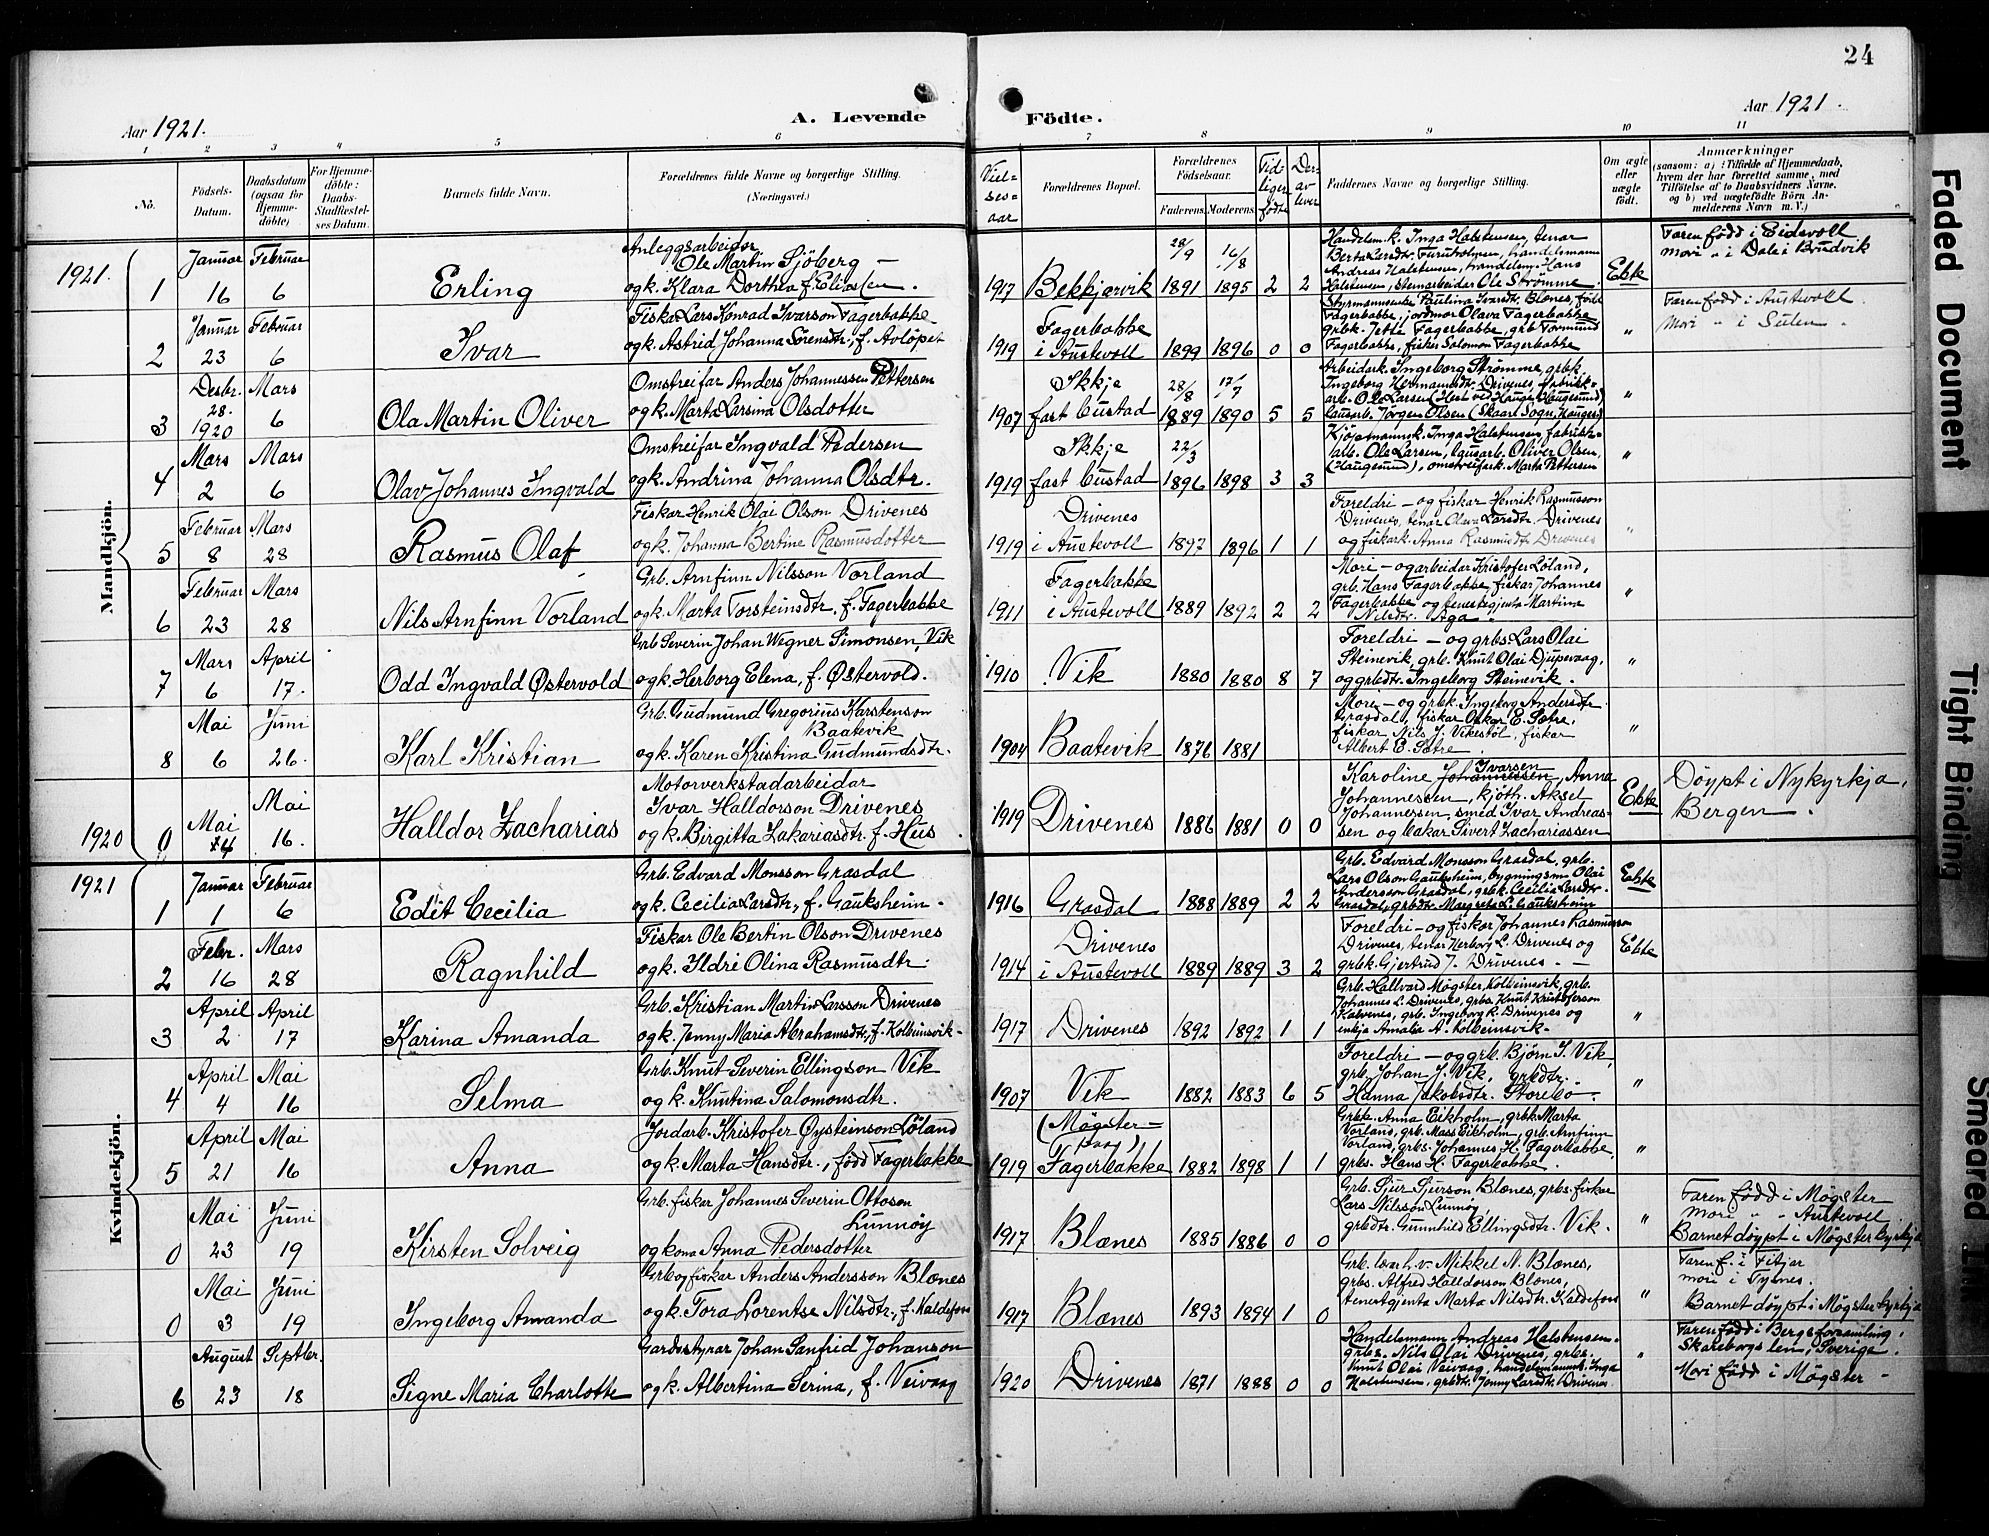 24
Aar 1921.
A. Levende
Födte.
Aar 1921.
1 2 3 4 5 6 7 8 9 10 11
No.
Födsels-Datum.
Daabsdatum (ogsaa for Hjemme-döbte)
For Hjemme-döbte: Daabs-Stadfæstel-ses Datum.
Barnets fulde Navn.
Forældrenes fulde Navne og borgerlige Stilling.
(Næringsvei.)
Viel-ses-aar
Forældrenes Bopæl.
Forældrenes Födselsaar.
Faderens. Moderens.
Tid-ligere fødte
Der-av lever
Faddernes Navne og borgerlige Stilling.
Om ægte eller uægte født.
Anmærkninger
(saasom: a) i Tilfælde af Hjemmedaab, hvem der har forrettet samme, med Tilföielse af to Daabsvidners Navne, og b) ved uægtefödte Börn An-melderens Navn m. V.)
Mandkjön.
1921. 1 Januar 16 Februar 6 Erling
Anleggsarbeidar Ole Martin Sjöberg –
og k. Klara Dorthea f. Eliassen.
1917 Bekkjarvik 28/9 1891 16/8 1895 2 2
Handelsm.k. Inga Halstensen, tenar
Berta Larsdtr. Furuholmen, handelsmann
Andreas Halstensen, handelsm. Hans
Halstensen, Stemarbeidar Ole Strömme.
Ekte
Faren född i Eidsvoll
Mori " i Dale i Bruvik
2 Januar 23 Februar 6 Ivar
Fiskar Lars Konrad Ivarson Fagerbakke
og k. Astrid Johanna Sörensdtr., f. Avlöpet
1919 Fagerbakke i Austevoll 1899 1896 0 0
Styrmannsenke Paulina Ivarsdtr. Blænes, född
Fagerbakke, jordmor Olava Fagerbakke
grbk. Jetta Fagerbakke, grb. Tormund
Fagerbakke, fiskar Salomon Fagerbakke
"
Faren född i Austevoll
Mori " i Sulen.
3 Desbr. 28. 1920 Mars 6 Ola Martin Oliver
Omstreifar Anders Johannessen Pettersen
og k. Marta Larsina Olsdotter
1907 Ikkje fast bustad 28/8 1889 17/7 1890 5 5
Arbeidark. Ingeborg Strømme, grbk.
Ingeborg Hermansdtr. Drivenes, fabrikk-
arb. Ole Larsen (Hest ved Hauge, Haugesund)
lausarb. Jørgen Olsen (Skaar Sogn, Hauges.)
"
4 Mars 2 Mars 6 Olav Johannes Ingvald
Omstreifar Ingvald Pedersen
og k. Andrina Johanna Olsdtr.
1919 Ikkje fast bustad 22/3 1896 1898 3 3
Kjøpmannsk. Inga Halstensen, fabrikk-
arb. Ole Larsen, lausarb. Oliver Olsen,
(Haugesund), omstreifark. Marta Pettersen
"
5 Februar 8 Mars 28 Rasmus Olaf
Fiskar Henrik Olai Olson Drivenes
og k. Johanna Bertine Rasmusdotter
1919 Drivenes i Austevoll 1897 1896 1 1
Foreldri – og fiskar Henrik Rasmusson
Drivenes, tenar Olava Larsdtr. Drivenes
og fiskark. Anna Rasmusdtr. Drivenes
"
6 Februar 23 Mars 28 Nils Arnfinn Vorland
Grb. Arnfinn Nilsson Vorland
og k. Marta Torsteinsdtr., f. Fagerbakke
1911 Fagerbakke i Austevoll 1889 1892 2 2
Mori – og arbeidar Kristofer Löland,
grb. Hans Fagerbakke, fiskar Johannes
Fagerbakke og tenestegjenta Martina
Nilsdtr. Aga
"
7 Mars 6 April 17. Odd Ingvald Østervold
Grb Severin Johan Wegner Simonsen, Vik
og k. Herborg Elena, f. Østervold.
1910 Vik 1880 1880 8 7
Foreldri – og grbs. Lars Olai
Steinevik, grb. Knut Olai Djupevaag,
og grbdtr. Ingeborg Steinevik.
"
8 Mai 6 Juni 26. Karl Kristian
Grb. Gudmund Gregorius Karstenson
Baatevik
og k. Karen Kristina Gudmundsdtr.
1904 Baatevik 1876 1881
Mori – og grbk. Ingeborg Andersdtr.
Grasdal, fiskar Oskar E. Sætre,
fiskar Nils J. Vikestöl, fiskar
Albert E. Sætre.
"
1920 0 Mai 14 Mai 16. Halldor Zacharias
Motorverkstadarbeidar
Ivar Halldorson Drivenes
og k. Birgitta Zakariasdtr. f. Hus.
1919 Drivenes 1886 1881 0 0
Karoline Johannessen Ivarsen, Anna
Johannessen, kjøth. Aksel
Johannersen, smed Ivar Andreas-
sen og bakar Sivert Zachariassen
Ekte
Döypt i Nykyrkja,
Bergen.
Kvindekjön.
1921 1 Januar 1 Februar 6 Edit Cecilia
Grb. Edvard Monsson Grasdal
og k. Cecilia Larsdtr., f. Gauksheim.
1916 Grasdal 1888 1889 2 2
Grb. Edvard Monsson Grasdal, grb.
Lars Olson Gauksheim, bygningsm Olai
Andersson Grasdal, grbk. Cecilia Larsdtr.
Grasdal, grbdtr. Margreta L. Gauksheim
Ekte
2 Febr. 16 Mars 28 Ragnhild
Fiskar Ole Bertin Olson Drivenes
og k. Ildri Olina Rasmusdtr.
1914 Drivenes i Austevoll 1889 1889 3 2
Foreldri – og fiskar Johannes Rasmusson
Drivenes, tenar Herborg L. Drivenes og
grbk. Gjertrud J. Drivenes. –
Ekte
3 April 2 April 17 Karina Amanda
Grb. Kristian Martin Larsson Drivenes
og k. Jenny Maria Abrahamsdtr., f. Kolbeinsvik.
1917 Drivenes 1892 1892 1 1
Grb. Hallvard Møgster, Kolbeinsvik, grb.
Johannes L. Drivenes, grbs. Knut Kristoferson
Kalvenes, grb. Ingeborg K. Drivenes og
enkja Amalia A. Kolbeinsvik.
"
4 April 4 Mai 16 Selma
Grb. Knut Severin Ellingson Vik
og k. Kristina Salomonsdtr.
1907 Vik 1882 1883 6 5
Foreldri – og grb. Björn J. Vik,
grb. Johan J. Vik, grbdtr.
Hanna Jakobsdtr. Storebö.
"
5 April 21 Mai 16 Anna
Jordarb. Kristofer Øysteinson Löland
og k. Marta Hansdtr., född Fagerbakke
1919 (Møgster-vaag), Fagerbakke 1882 1898 1 1
Grbk. Anna Eikholm, grbk. Marta
Vorland, grb. Mass Eikholm, grb. Arnfinn
Vorland, grbs. Johannes H. Fagerbakke,
grbs. Hans H. Fagerbakke.
"
0 Mai 23 Juni 19 Kirsten Solveig
Grb. fiskar Johannes Severin Ottoson
Lunnøy
og kona Anna Pedersdotter
1917 Blænes 1885 1886 0 0
Grb. Sjur Sjurson Blænes, grbs. fiskar
Lars Nilsson Lunnøy,
grbdtr. Gunnhild Ellingsdtr. Vik.
"
Faren född i Møgster
Mori " " Austevoll
Barnet döypt i Møgster kyrkja
0 Mai 3 Juni 19 Ingeborg Amanda
Grb og fiskar Anders Andersson Blænes
og k. Tora Lorentse Nilsdtr., f. Kaldefoss
1917 Blænes 1893 1894 1 0
Grb. lærar h.v. Mikkel N. Blænes,
grbs. Alfred Halldorson Blænes,
tenestgjenta Marta Nilsdtr. Kaldefoss
"
Faren f. i Fitjar
Mori i Tysnes.
Barnet döypt i Møgster kyrkja
6 August 23 Septbr. 18 Signe Maria Charlotte
Gardsstyrar Johan Sanfrid Johanson
og k. Albertina Serina, f. Veivaag
1920 Drivenes 1871 1888 0 0
Handelsmann Andreas Halstensen.
grbs. Nils Olai Drivenes, grbs.
Knut Olai Veivaag, handelsmannsk. Inga
Halstensen, grbdtr. Jenny Larsdtr. Drivenes.
"
Faren född i Bergs forsamling,
Skaraborgs len, Sverige.
Mori född i Møgster –
Faded Document
Tight Binding
Smeared Ink